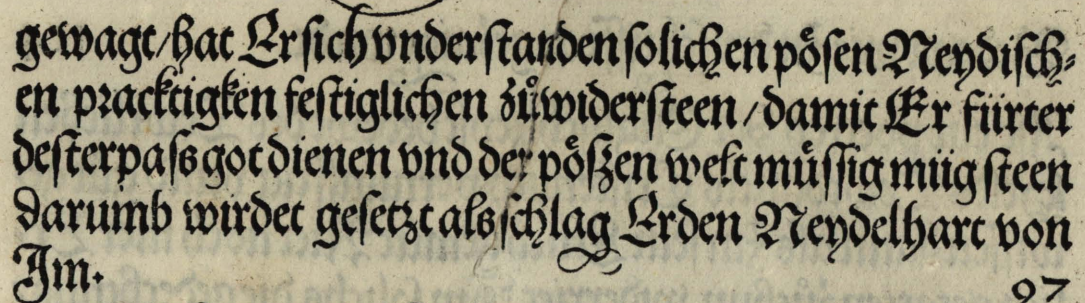 gewagt/hat Er sich vnderstanden solichen pösen Neydisch⸗
en practigken festiglichen zůwidersteen/damit Er fürter
desterpaſs got dienen vnd der pöſzen welt müſsig müg steen
darumb wirdet gesetzt als schlag Er den Neydelhart von
Im.
97